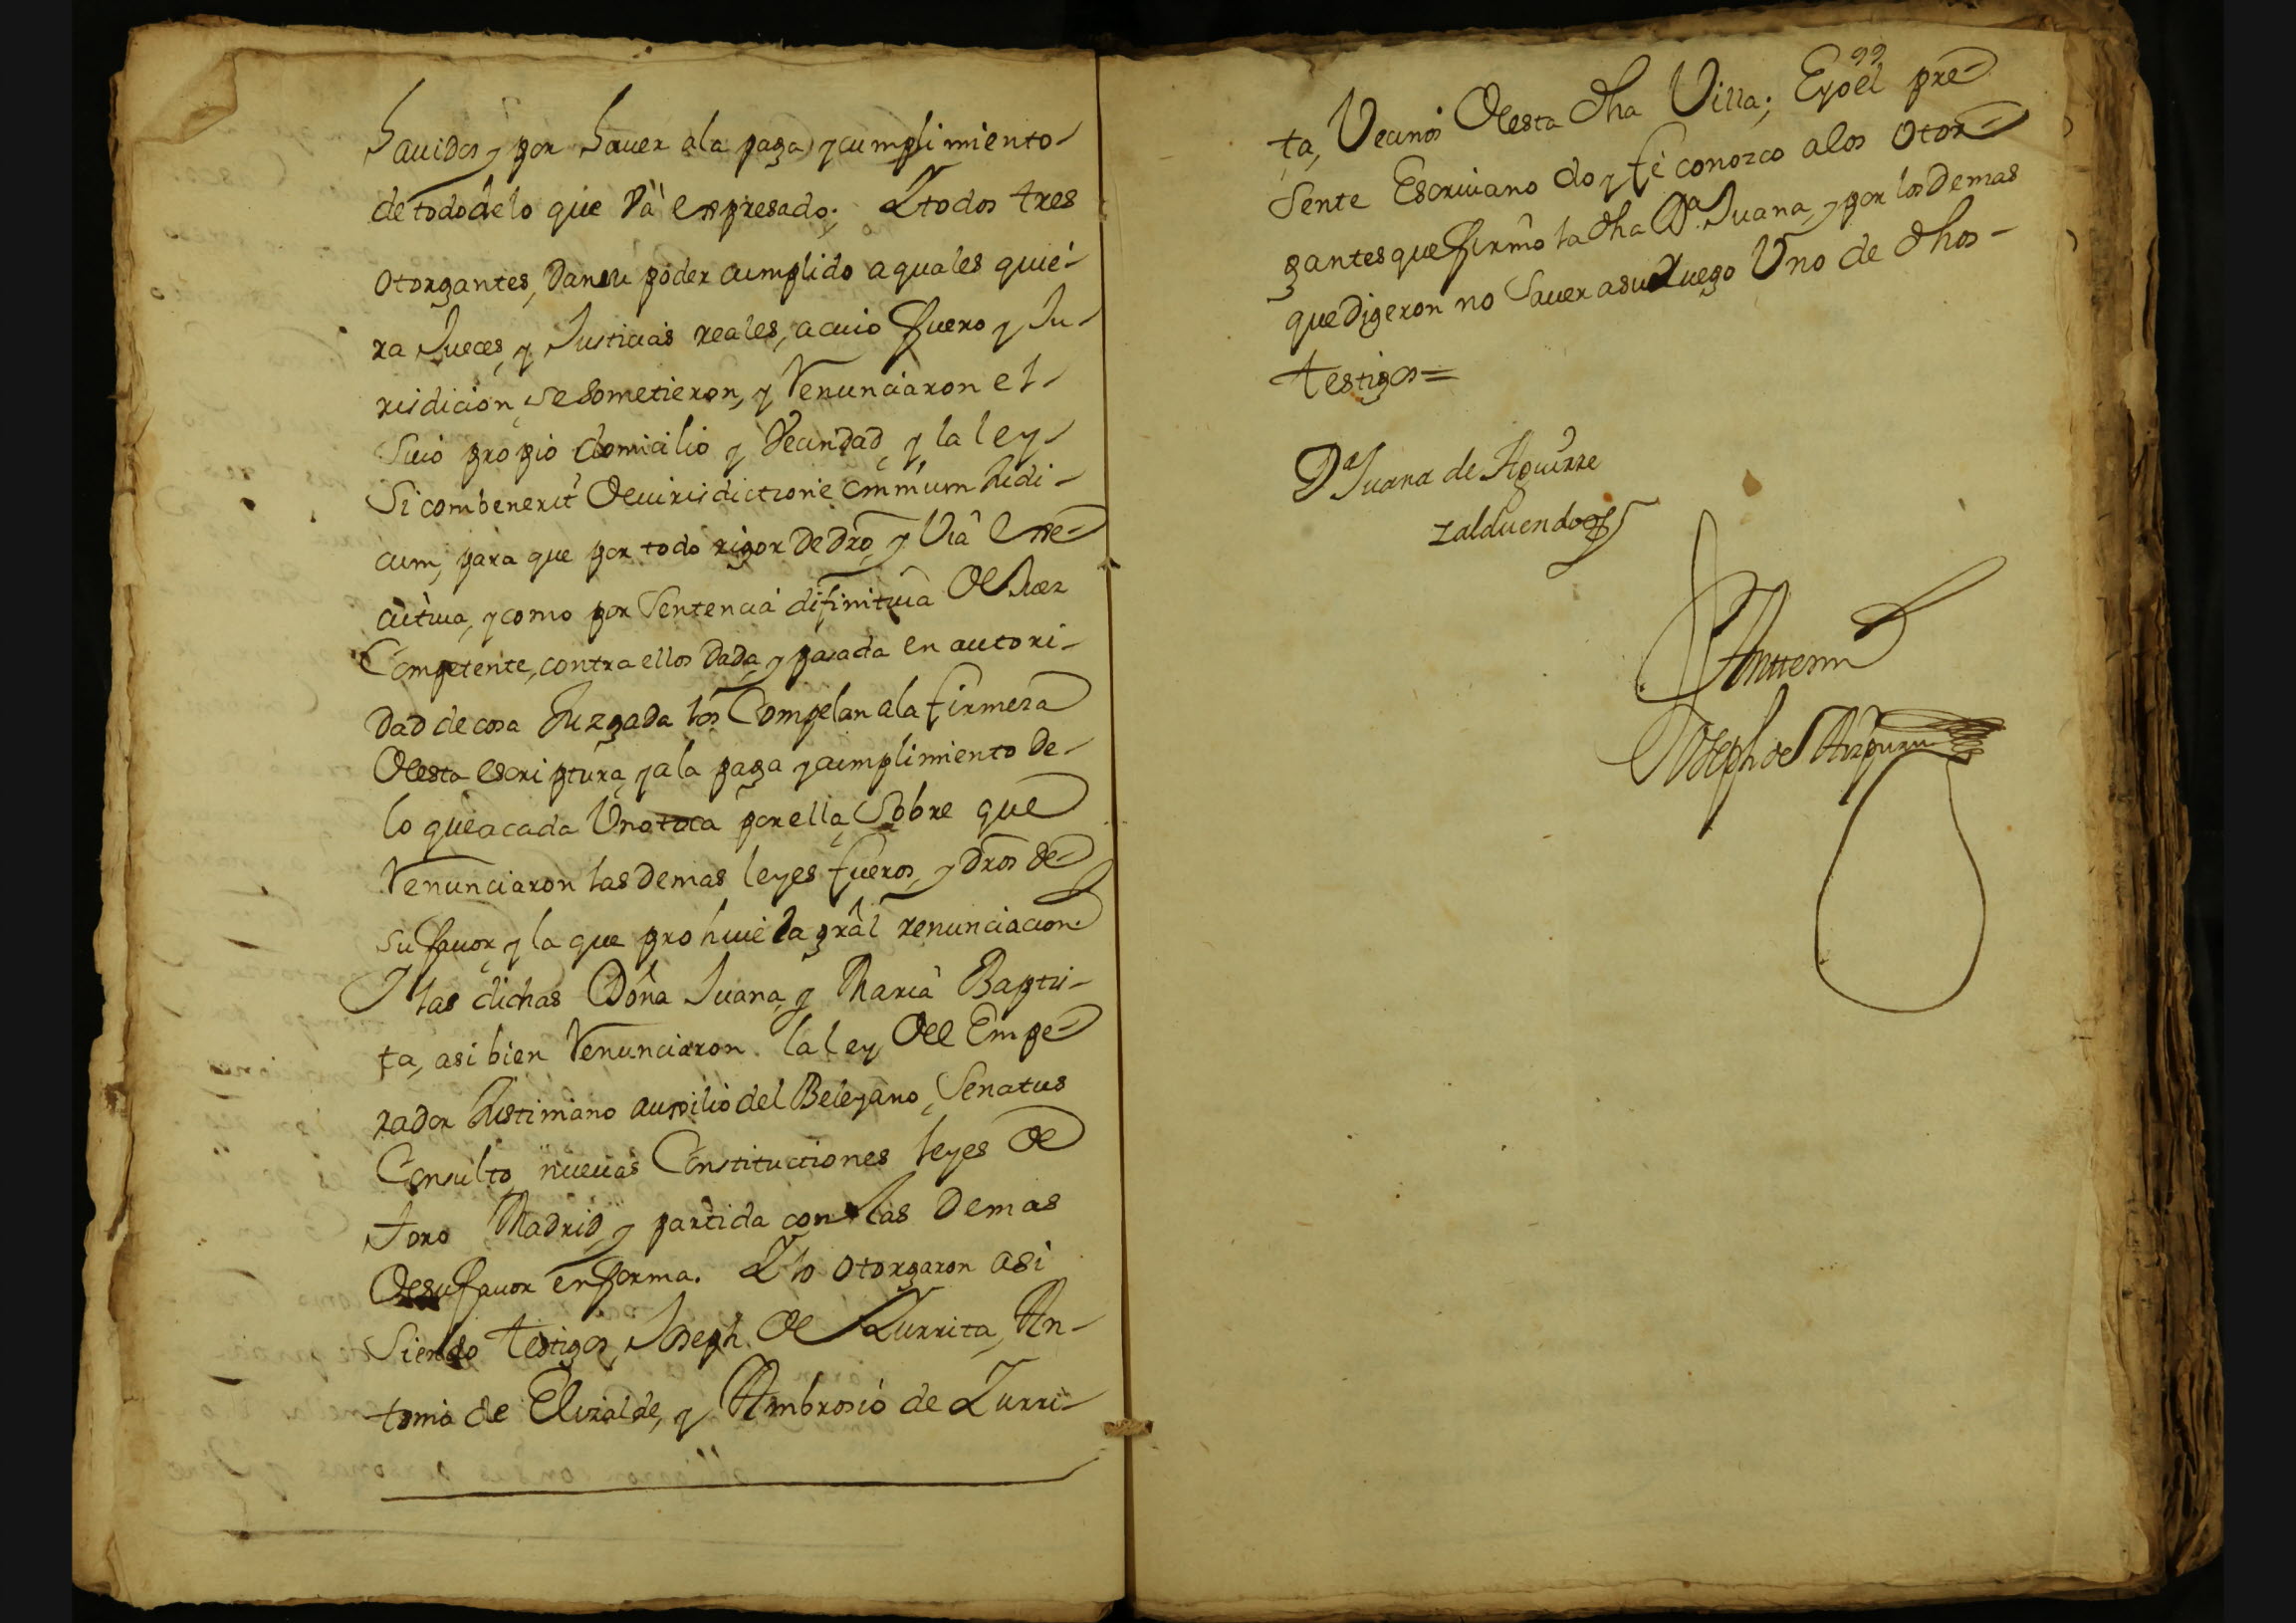 hauidos y por hauer ala paga y cumplimiento
de todo de lo que Va expresado; Y todos tres
otorgantes, Dan su poder cumplido a quales quie-
ra Jueces, y Justicias reales, a cuio fuero y Ju-
risdicion, se sometieron, y Renunciaron el
Suio propio domicilio y Vecindad, y la ley
Si combenerit De iurisdictione omnium Judi-
cum, para que por todo rigor De dro, y Via exe-
cutiua, y como por Sentencia difinitiua De Juez
Competente, contra ellos Dada y pasada en autori-
Dad de cosa Juzgada los Compelan a la firmeza
De esta escriptura, y a la paga y cumplimiento de
lo que a cada Uno toca por ella, Sobre que
Renunciaron las demas leyes fueros, y dros de
su fauor, y la que prohiue la gral renunciacion.
Y las dichas Doña Juana, y Maria Baptis-
ta, asi bien Renunciaron. la ley Del Empe-
rador Justiniano auxilio del Beleyano, Senatus
Consulto, nueuas Constituciones leyes de
Toro Madrid, y partida con las Demas
De su fauor en forma. Y lo otorgaron asi
Siendo testigos, Joseph De Zurrita, An-
tonio de Elizalde, y Ambrosio de Zurri-
99
ta, Vecinos Desta dha Villa; E yo el pre-
sente Escriuano doy fe conozco a los otor-
gantes que firmo la dha Da. Juana, y por los Demas
que digeron no Sauer a su Ruego Uno de dhos
testigos =
Da Juana de Aguirre
zalduendo
Ante mi
Joseph de